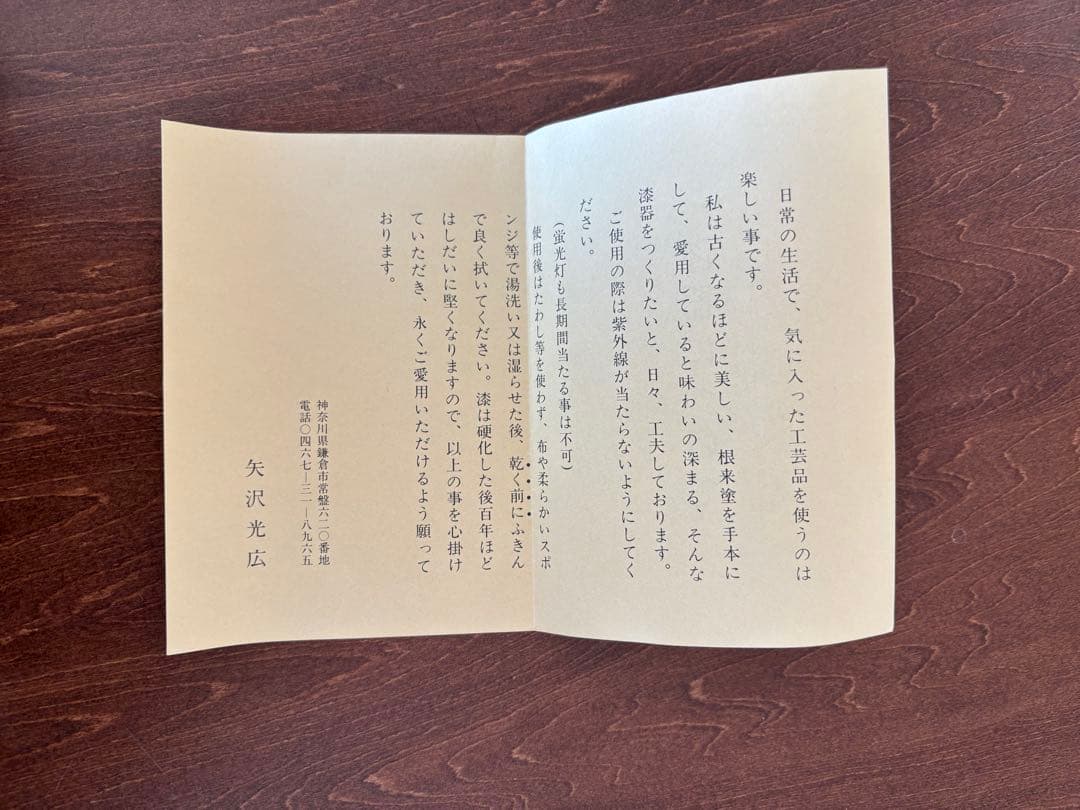 日常の生活で、気に入った工芸品を使うのは
楽しい事です。
私は古くなるほどに美しい、根来塗を手本に
して、愛用していると味わいの深まる、そんな
漆器をつくりたいと、日々、工夫しております。
ご使用の際は紫外線が当たらないようにしてく
ださい。
(蛍光灯も長期間当たる事は不可)
使用後はたわし等を使わず、布や柔らかいスポ
ンジ等で湯洗い又は湿らせた後、乾く前にふきん
で良く拭いてください。漆は硬化した後百年ほど
はしだいに堅くなりますので、以上の事を心掛け
ていただき、永くご愛用いただけるよう願って
おります。
神奈川県鎌倉市常盤六二〇番地
電話〇四六七―三一―八九六五
矢沢光広